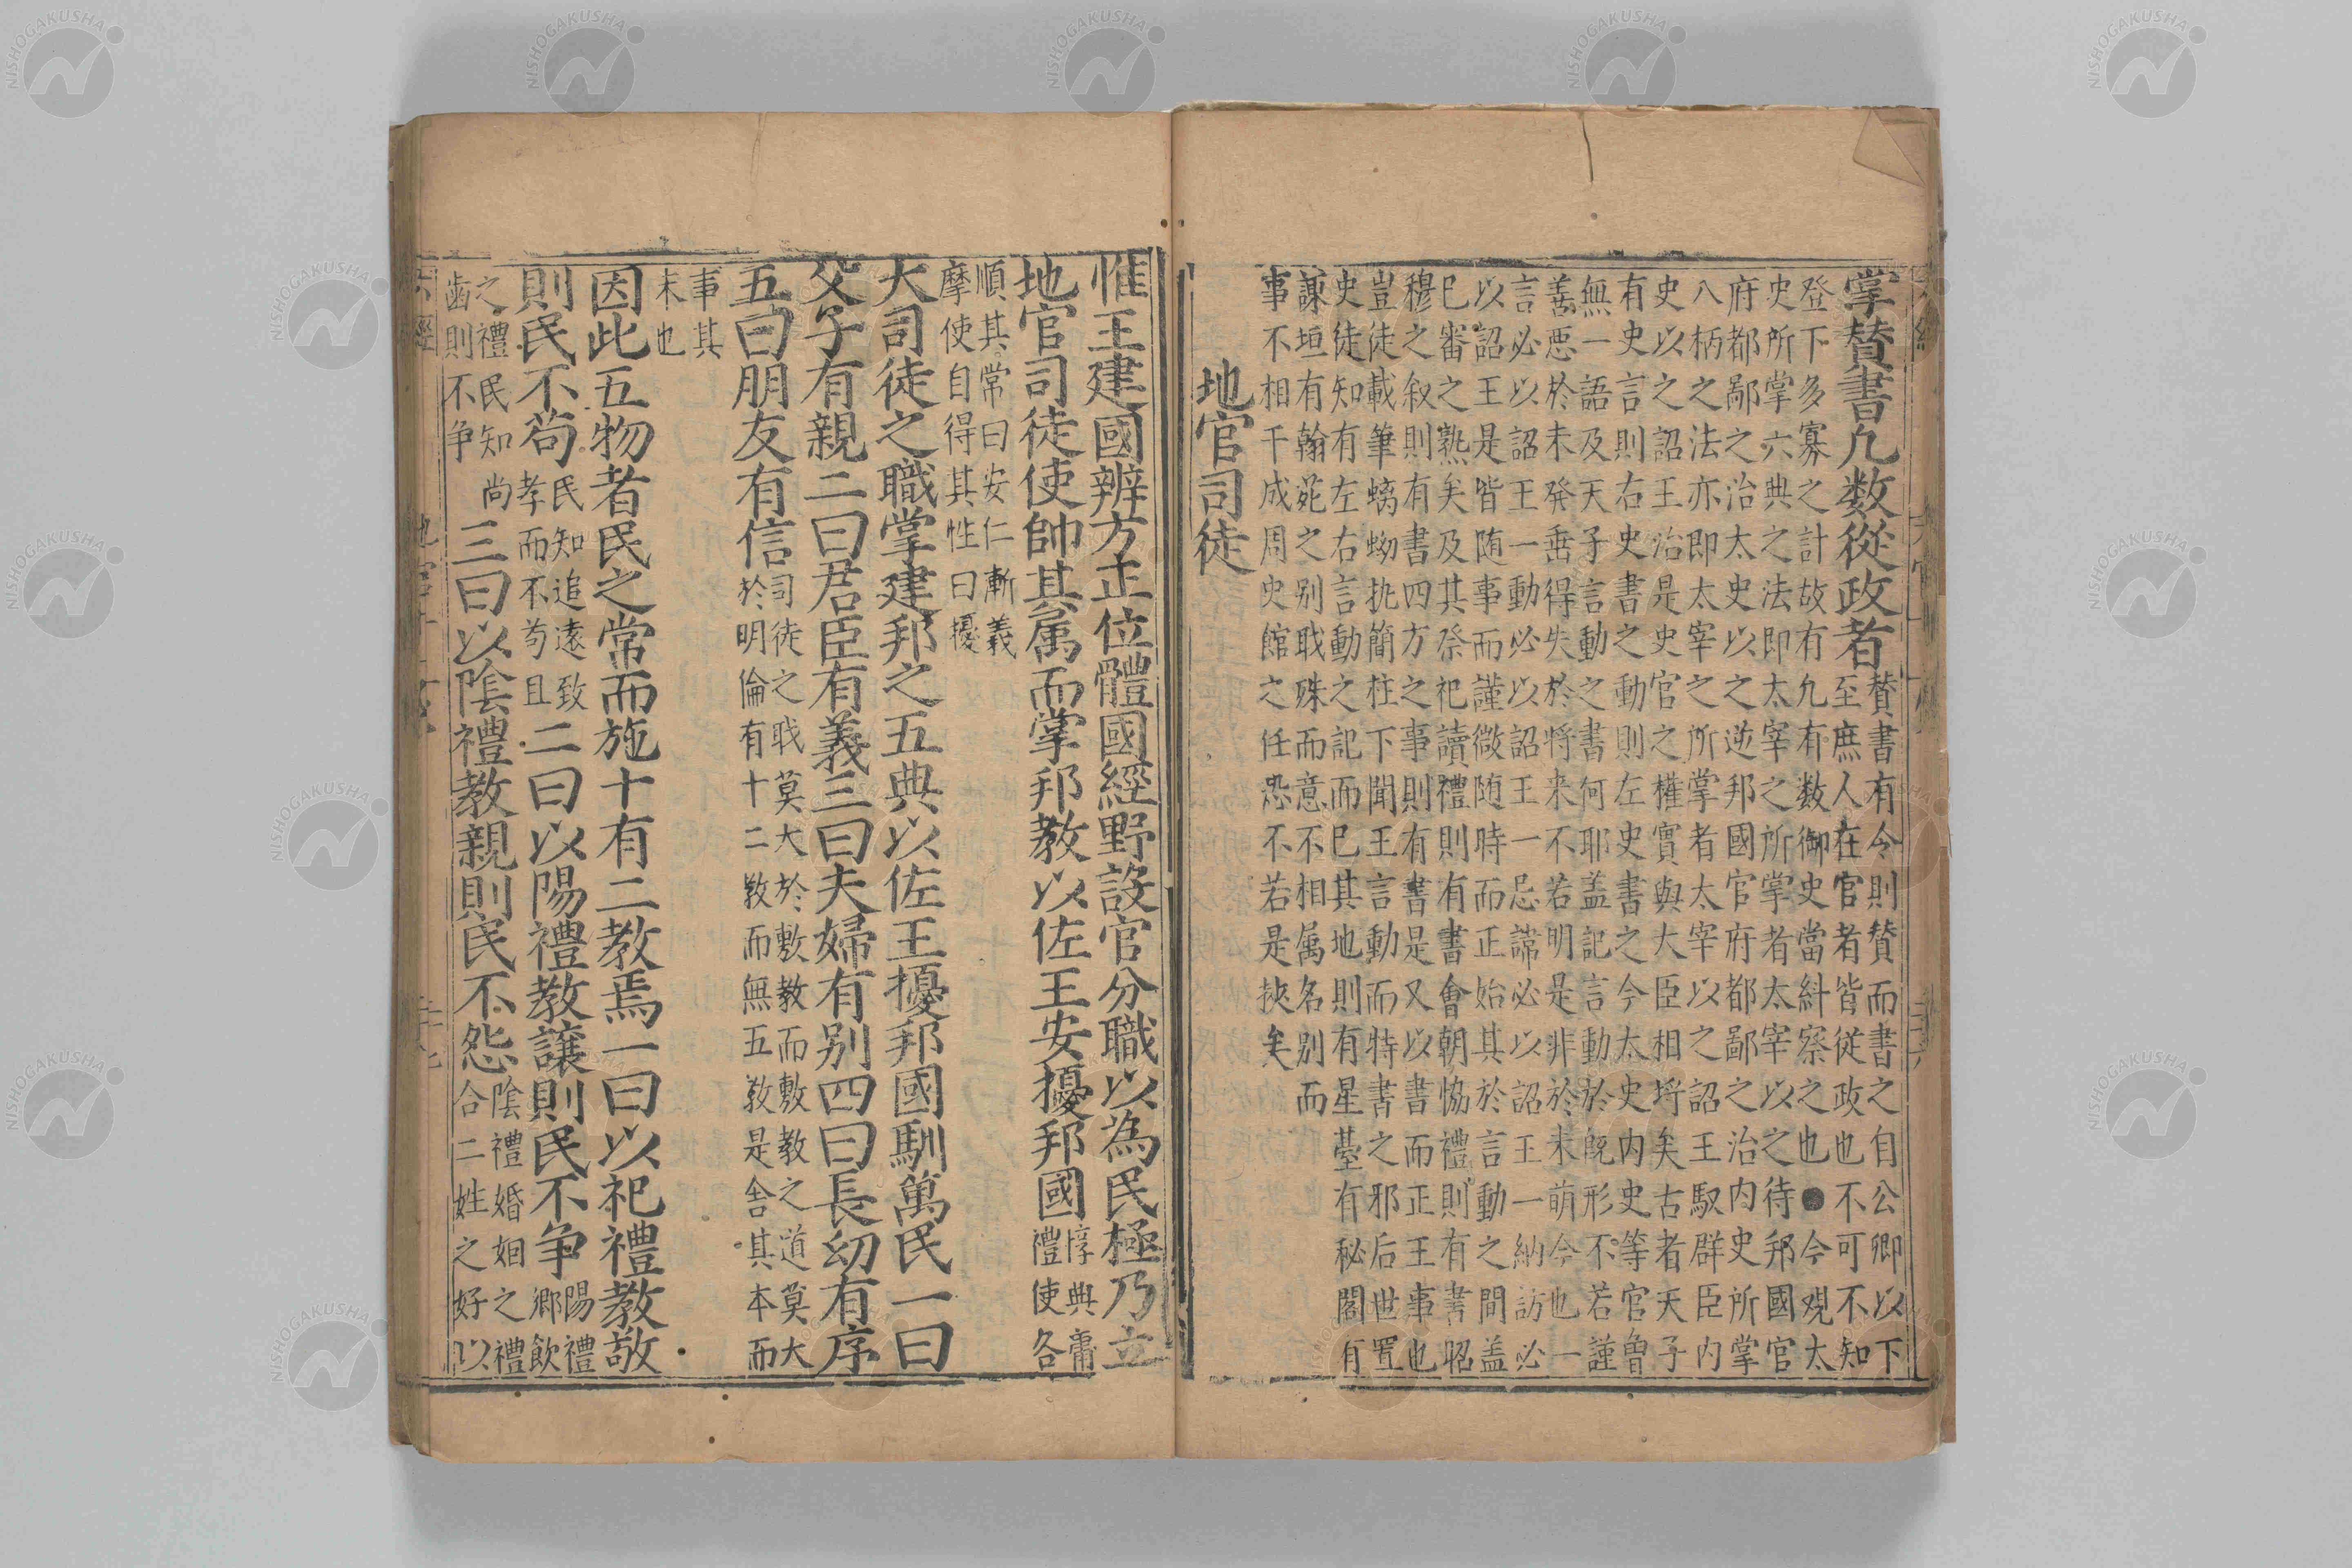 掌賛書凡数從政者
賛書有令則賛而書之自公卿以下
至庶人在官者皆従政也不可不知
登下多寡之計故有凡有数御史當糾察之也●今观太
史所掌六典之法即太宰之所掌者太宰以之待邦國官
府都鄙之治太史以之逆邦國官府都鄙之治内史所掌
八柄之法亦即太宰之所掌者太宰以之詔王馭群臣内
史以之詔王治是史官之權實與大臣相埒矣古者天子
有史言則右史書之動則左史書之今太史内史等官曾
無一語及天子言動之書何耶盖記言動於既形不若謹
善悪於未発垂得失於将来不若明是非於未萌今也一
言必以詔王一動必以詔王一忌諱必以詔王一納訪必
以詔王是皆随事而謹微随時而正始其於言動之間盖
已審之熟矣及其祭祀讀禮則有書會朝恊禮則有書昭
穆之叙則有書四方之事則有書是又以書而正王事也
豈徒載筆螭簡柱下聞王言動而特書之邪后世置
史徒知有左右言動之記而已其地則有星䑓有秘閣有
諌垣有翰苑之别戝殊而意不相属名别而
事不相干成周史館之任恐不若是挾矣
地官司徒
惟王建國辨方正位體國經野設官分職以為民極乃立
地官司徒使帥其属而掌邦教以佐王安擾邦國
惇典庸
禮使各
順其常曰安仁漸義
摩使自得其性曰擾
大司徒之職掌建邦之五典以佐王擾邦國馴萬民一曰
父子有親二曰君臣有義三曰夫婦有别四曰長幼有序
五曰朋友有信
司徒之戝莫大於敷教而敷教之道莫大
於明倫有十二教而無五教是舎其本而
事其
末也
因此五物者民之常而施十有二教焉一曰以祀禮教敬
則民不苟
民知追遠致
孝而不苟且
二曰以陽禮教讓則民不争
陽禮
鄉飲
之禮民知尚
齒則不争
三曰以陰禮教親則民不怨
陰禮婚姻之禮
合二姓之好以